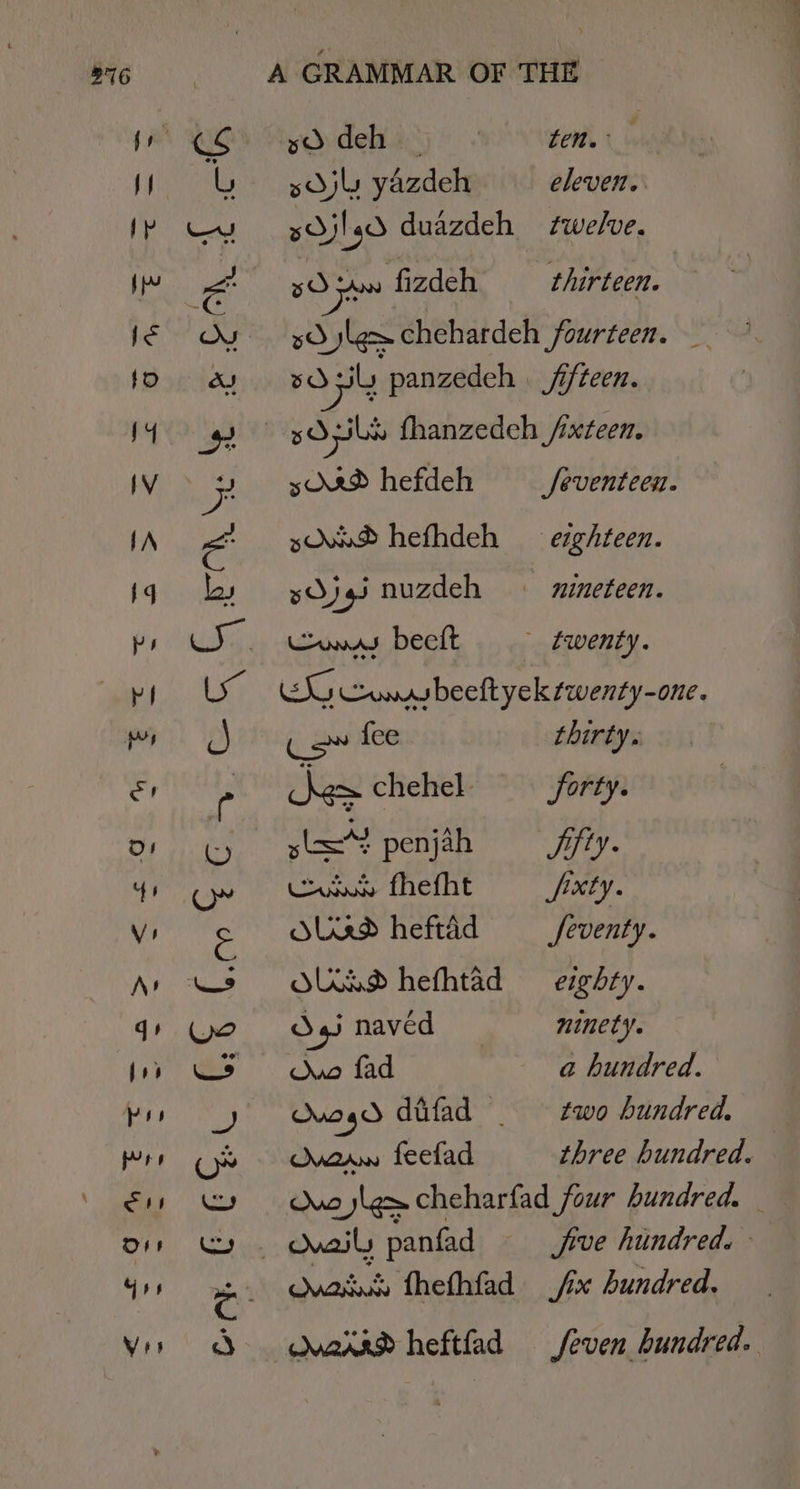 276 A GRAMMAR OF THE
۱۰ ی ده deh ten.
۱۱ یا یازده yázdeh eleven.
۱۲ یب دوازده duázdeh twelve.
۱۳ یج سیزده ſizdeh thirteen.
۱۴ ید چهارده chehardeh fourteen.
۱۵ یه پانزده panzedeh fifteen.
۱۶ یو شانزده ſhanzedeh ſixteen.
۱۷ یز هفده hefdeh ſeventeen.
۱۸ یح هشده heſhdeh eighteen.
۱۹ یط نوزده nuzdeh nineteen.
۲۰ ک بیست beeſt twenty.
۲۱ کا بیست یک beeſt yek twenty-one.
۳۰ ل سی ſee thirty.
۴۰ م چهل chehel forty.
۵۰ ن پنجاه penjâh fifty.
۶۰ س شست ſheſht ſixty.
۷۰ ع هفتاد heftâd ſeventy.
۸۰ ف هشتاد heſhtâd eighty.
۹۰ ص نود navéd ninety.
۱۰۰ ق صد ſad a hundred.
۲۰۰ ر دوصد dûſad two hundred.
۳۰۰ ش سیصد ſeeſad three hundred.
۴۰۰ ت چهارصد cheharſad four hundred.
۵۰۰ ث پانصد panſad five hundred.
۶۰۰ خ ششصد ſheſhſad ſix hundred.
۷۰۰ ذ هفتصد heftſad ſeven hundred.